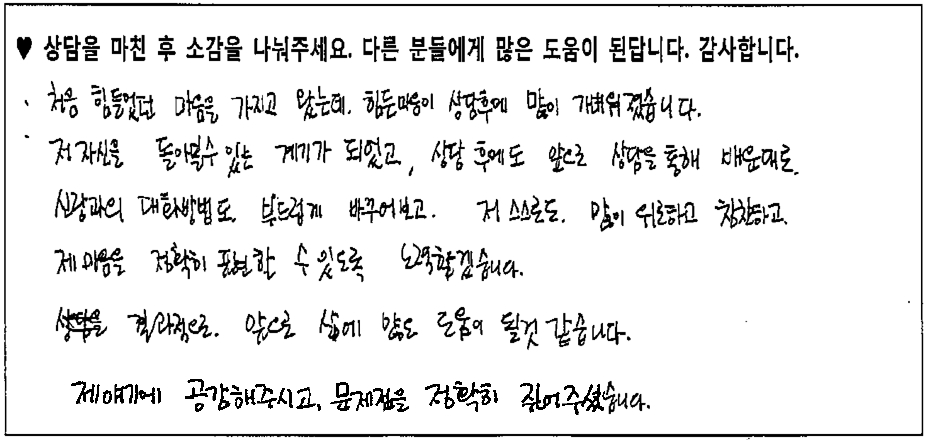 ♥ 상담을 마친 후 소감을 나눠주세요. 다른 분들에게 많은 도움이 된답니다. 감사합니다.
처음 힘들었던 마음을 가지고 왔는데. 힘든마음이 상담후에 많이 가벼워졌습니다.
저 자신을 돌아볼수 있는 계기가 되었고, 상담 후에도 앞으로 상담을 통해 배운대로.
신랑과의 대화방법도. 부드럽게 바꾸어보고. 저 스스로도. 많이 위로하고 칭찬하고.
제 마음을 정확히 표현할 수 있도록 노력할겠습니다.
상담을 결과적으로. 앞으로 삶에 많은 도움이 될것 같습니다.
제얘기에 공감해주시고, 문제점을 정확히 짚어주셨습니다.